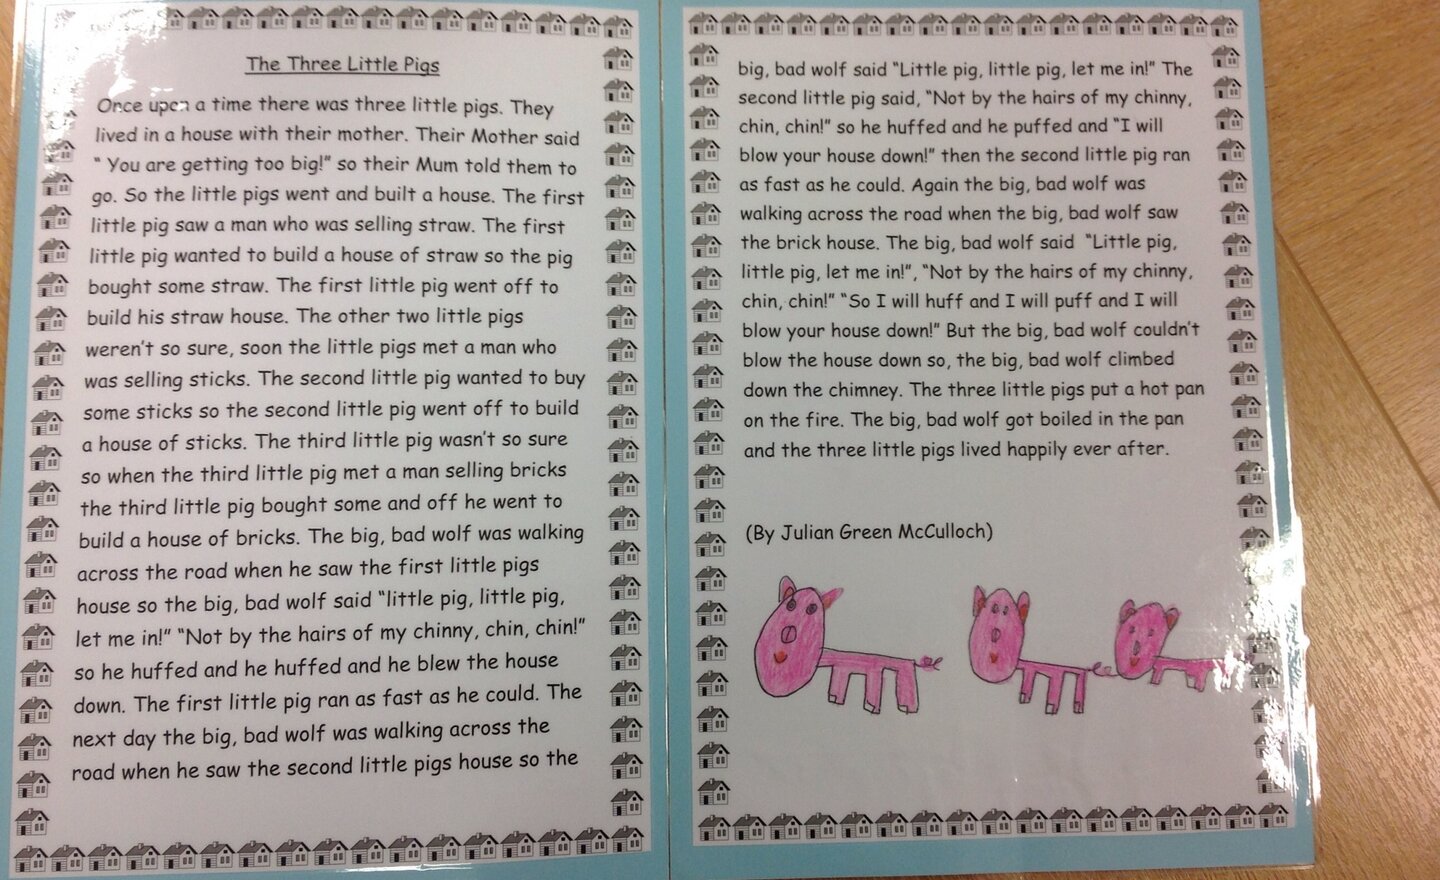 The Three Little Pigs
Once upon a time there was three little pigs. They
lived in a house with their mother. Their Mother said
“ You are getting too big!” so their Mum told them to
go. So the little pigs went and built a house. The first
little pig saw a man who was selling straw. The first
little pig wanted to build a house of straw so the pig
bought some straw. The first little pig went off to
build his straw house. The other two little pigs
weren’t so sure, soon the little pigs met a man who
was selling sticks. The second little pig wanted to buy
some sticks so the second little pig went off to build
a house of sticks. The third little pig wasn’t so sure
so when the third little pig met a man selling bricks
the third little pig bought some and off he went to
build a house of bricks. The big, bad wolf was walking
across the road when he saw the first little pigs
house so the big, bad wolf said “little pig, little pig,
let me in!” “Not by the hairs of my chinny, chin, chin!”
so he huffed and he huffed and he blew the house
down. The first little pig ran as fast as he could. The
next day the big, bad wolf was walking across the
road when he saw the second little pigs house so the
big, bad wolf said “Little pig, little pig, let me in!” The
second little pig said, “Not by the hairs of my chinny,
chin, chin!” so he huffed and he puffed and “I will
blow your house down!” then the second little pig ran
as fast as he could. Again the big, bad wolf was
walking across the road when the big, bad wolf saw
the brick house. The big, bad wolf said “Little pig,
little pig, let me in!”, “Not by the hairs of my chinny,
chin, chin!” “So I will huff and I will puff and I will
blow your house down!” But the big, bad wolf couldn’t
blow the house down so, the big, bad wolf climbed
down the chimney. The three little pigs put a hot pan
on the fire. The big, bad wolf got boiled in the pan
and the three little pigs lived happily ever after.
(By Julian Green McCulloch)